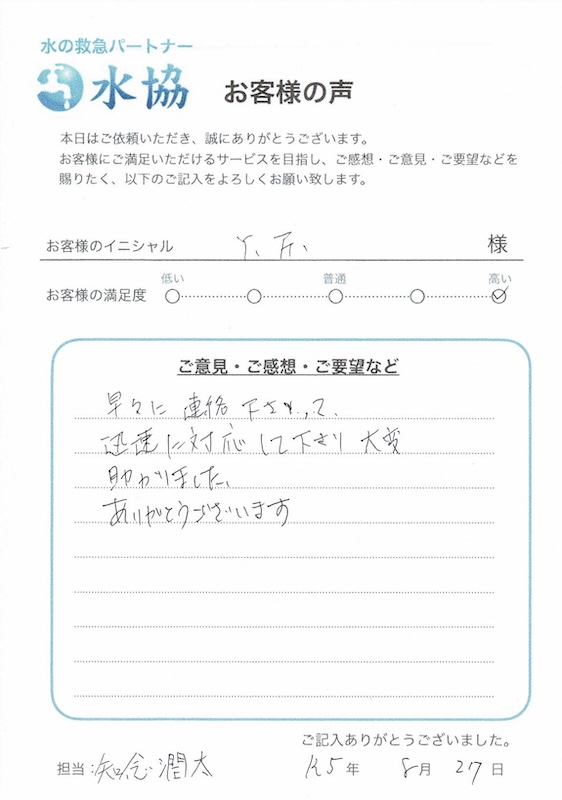 水の救急パートナー
水協 お客様の声
本日はご依頼いただき、誠にありがとうございます。
お客様にご満足いただけるサービスを目指し、ご感想・ご意見・ご要望などを
賜りたく、以下のご記入をよろしくお願い致します。
お客様のイニシャル Y. 様
低い 普通 高い
お客様の満足度
ご意見・ご感想・ご要望など
早々に連絡下さって、
迅速に対応して下さり大変
助かりました、
ありがとうございます
ご記入ありがとうございました。
担当:知念潤太 R5年 8月 27日